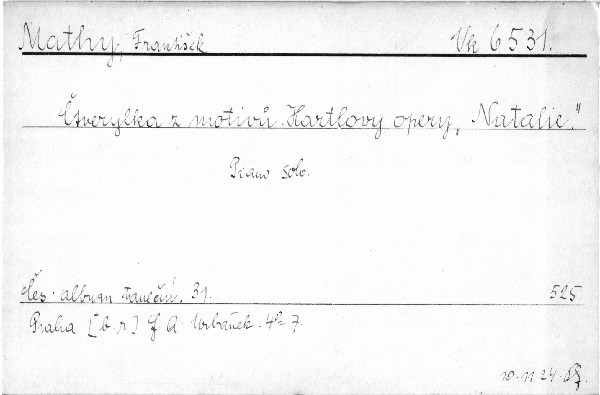 Mathy, František Vk 6531.
Čtverylka z motivů Hartlovy opery „Natalie."
Piano solo.
Čes. album taneční. 31. 525
Praha [b. r.] F A Urbánek. 4° 7.
10. 11 24.